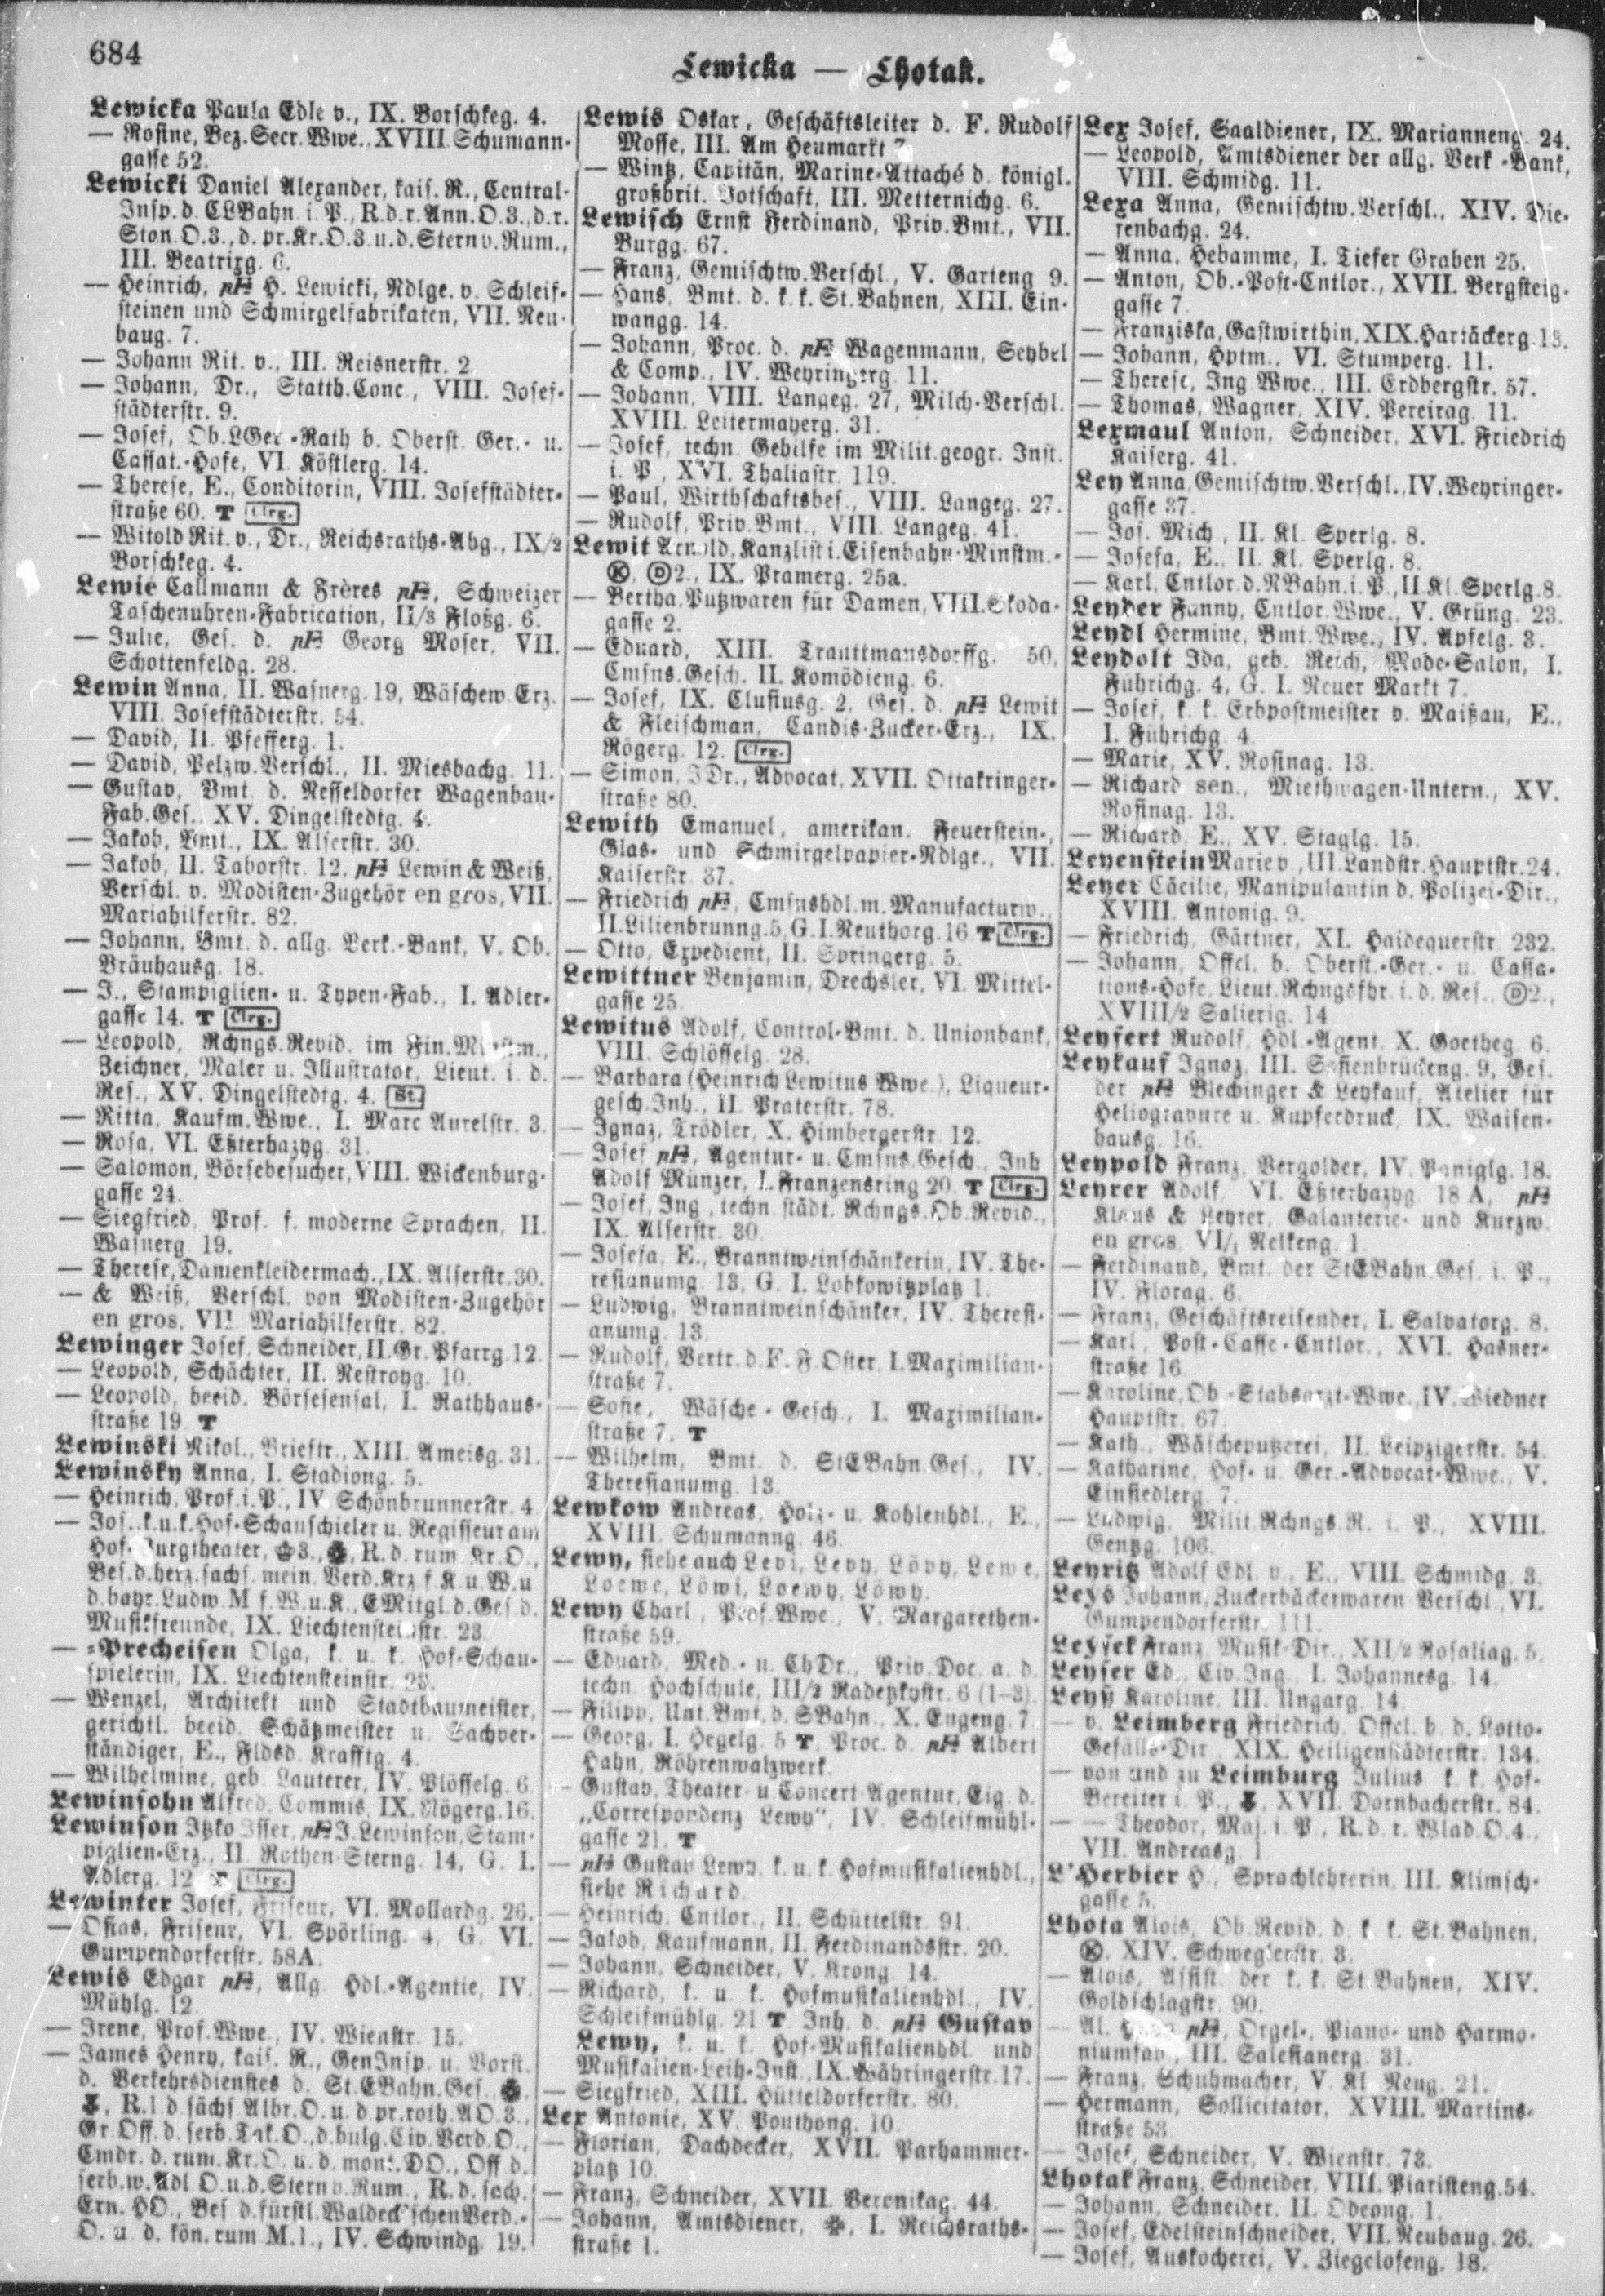 684
Lewicka — Lhotak.
Lewicka Paula Edle v., IX. Borschkeg. 4.
— Rosine, Bez. Secr. Wwe., XVIII. Schumann-
gasse 52.
Lewicki Daniel Alexander, kais. R., Central-
Insp. d. CLBahn i. P., R. d. r. Ann. O. 3., d. r.
Stan. O. 3., d. pr. Kr. O. 3. u. d. Stern v. Rum.,
III. Beatrixg. 6.
— Heinrich, pH H. Lewicki, Ndlge. v. Schleif-
steinen und Schmirgelfabrikaten, VII. Neu-
baug. 7.
— Johann Rit. v., III. Reisnerstr. 2.
— Johann, Dr., Statth. Conc., VIII. Josef-
städterstr. 9.
— Josef, Ob. LGer.-Rath b. Oberst. Ger.- u.
Cassat.-Hofe, VI. Köstlerg. 14.
— Therese, E., Conditorin, VIII. Josefstädter-
straße 60. T Clrg.
— Witold Rit. v., Dr., Reichsraths-Abg., IX/2
Borschkeg. 4.
Lewié Callmann & Frères pH, Schweizer
Taschenuhren-Fabrication, II/3 Floßg. 6.
— Julie, Ges. d. pH Georg Moser, VII.
Schottenfeldg. 28.
Lewin Anna, II. Wasnerg. 19, Wäschew. Erz.
VIII. Josefstädterstr. 54.
— David, II. Pfefferg. 1.
— David, Pelzw. Verschl., II. Miesbachg. 11.
— Gustav, Bmt. d. Nesseldorfer Wagenbau-
Fab. Ges., XV. Dingelstedtg. 4.
— Jakob, Bmt., IX. Alserstr. 30.
— Jakob, II. Taborstr. 12, pH Lewin & Weiß,
Verschl. v. Modisten-Zugehör en gros, VII.
Mariahilferstr. 82.
— Johann, Bmt. d. allg. Verk.-Bank, V. Ob.
Bräuhausg. 18.
— J., Stampiglien- u. Typen-Fab., I. Adler-
gasse 14. T Clrg.
— Leopold, Rchngs. Revid. im Fin. Minstm.,
Zeichner, Maler u. Illustrator, Lieut. i. d.
Res., XV. Dingelstedtg. 4. St.
— Ritta, Kaufm. Wwe., I. Marc Aurelstr. 3.
— Rosa, VI. Eßterhazyg. 31.
— Salomon, Börsebesucher, VIII. Wickenburg-
gasse 24.
— Siegfried, Prof. f. moderne Sprachen, II.
Wasnerg. 19.
— Therese, Damenkleidermach., IX. Alserstr. 30.
— & Weiß, Verschl. von Modisten-Zugehör
en gros, VII. Mariahilferstr. 82.
Lewinger Josef, Schneider, II. Gr. Pfarrg. 12.
— Leopold, Schächter, II. Nestroyg. 10.
— Leopold, beeid. Börsesensal, I. Rathhaus-
straße 19. T
Lewinski Nikol., Brieftr., XIII. Ameisg. 31.
Lewinsky Anna, I. Stadiong. 5.
— Heinrich, Prof. i. P., IV. Schönbrunnerstr. 4.
— Jos., k. u. k. Hof-Schauspieler u. Regisseur am
Hof-Burgtheater, 3., R. d. rum. Kr. O.,
Bes. d. herz. sachs. mein. Verd. Krz. f. K. u. W. u.
d. bayr. Ludw. M. f. W. u. K., EMitgl. d. Ges. d.
Musikfreunde, IX. Liechtensteinstr. 23.
— -Precheisen Olga, k. u. k. Hof-Schau-
spielerin, IX. Liechtensteinstr. 23.
— Wenzel, Architekt und Stadtbaumeister,
gerichtl. beeid. Schätzmeister u. Sachver-
ständiger, E., Fldsd. Krafftg. 4.
— Wilhelmine, geb. Lauterer, IV. Plösselg. 6.
Lewinsohn Alfred, Commis, IX. Rögerg. 16.
Lewinson Itzko Isser, pH J. Lewinson, Stam-
piglien-Erz., II. Rothen-Sterng. 14, G. I.
Adlerg. 12. T Clrg.
Lewinter Josef, Friseur, VI. Mollardg. 26.
— Osias, Friseur, VI. Spörling. 4, G. VI.
Gumpendorferstr. 58A.
Lewis Edgar pH, Allg. Hdl.-Agentie, IV.
Mühlg. 12.
— Irene, Prof. Wwe., IV. Wienstr. 15.
— James Henry, kais. R., GenInsp. u. Vorst.
d. Verkehrsdienstes d. St. EBahn. Ges.,
R. 1. d. sächs. Albr. O. u. d. pr. roth. AO. 3.,
Gr. Off. d. serb. Tak. O., d. bulg. Civ. Verd. O.,
Cmdr. d. rum. Kr. O. u. d. mont. DO., Off. d.
serb. w. Adl. O. u. d. Stern v. Rum., R. d. sach.
Ern. HO., Bes. d. fürstl. Waldeck'schen Verd.-
O. u. d. kön. rum. M. 1., IV. Schwindg. 19.
Lewis Oskar, Geschäftsleiter d. F. Rudolf
Mosse, III. Am Heumarkt 7.
— Wintz, Capitän, Marine-Attaché d. königl.
großbrit. Botschaft, III. Metternichg. 6.
Lewisch Ernst Ferdinand, Priv. Bmt., VII.
Burgg. 67.
— Franz, Gemischtw. Verschl., V. Garteng. 9.
— Hans, Bmt. d. k. k. St. Bahnen, XIII. Ein-
wangg. 14.
— Johann, Proc. d. pH Wagenmann, Seybel
& Comp., IV. Weyringerg. 11.
— Johann, VIII. Langeg. 27, Milch-Verschl.
XVIII. Leitermayerg. 31.
— Josef, techn. Gehilfe im Milit. geogr. Inst.
i. P., XVI. Thaliastr. 119.
— Paul, Wirthschaftsbes., VIII. Langeg. 27.
— Rudolf, Priv. Bmt., VIII. Langeg. 41.
Lewit Arnold, Kanzlist i. Eisenbahn-Minstm.-
K, D 2., IX. Pramerg. 25a.
— Bertha, Putzwaren für Damen, VIII. Skoda-
gasse 2.
— Eduard, XIII. Trauttmansdorffg. 50,
Cmsns. Gesch. II. Komödieng. 6.
— Josef, IX. Clusiusg. 2, Ges. d. pH Lewit
& Fleischman, Candis-Zucker-Erz., IX.
Rögerg. 12. Clrg.
— Simon, JDr., Advocat, XVII. Ottakringer-
straße 80.
Lewith Emanuel, amerikan. Feuerstein-,
Glas- und Schmirgelpapier-Ndlge., VII.
Kaiserstr. 37.
— Friedrich pH, Cmsnshdl. m. Manufacturw.,
II. Lilienbrunng. 5, G. I. Neuthorg. 16 T Clrg.
— Otto, Expedient, II. Springerg. 5.
Lewittner Benjamin, Drechsler, VI. Mittel-
gasse 25.
Lewitus Adolf, Control-Bmt. d. Unionbank,
VIII. Schlösselg. 28.
— Barbara (Heinrich Lewitus Wwe.), Liqueur-
gesch. Inh., II. Praterstr. 78.
— Ignaz, Trödler, X. Himbergerstr. 12.
— Josef pH, Agentur- u. Cmsns. Gesch., Inh.
Adolf Münzer, I. Franzensring 20. T Clrg.
— Josef, Ing., techn. städt. Rchngs. Ob. Revid.,
IX. Alserstr. 30.
— Josefa, E., Branntweinschänkerin, IV. The-
resianumg. 13, G. I. Lobkowitzplatz 1.
— Ludwig, Branntweinschänker, IV. Theresi-
anumg. 13.
— Rudolf, Vertr. d. F. F. Oster, I. Maximilian-
straße 7.
— Sofie, Wäsche-Gesch., I. Maximilian-
straße 7. T
— Wilhelm, Bmt. d. StEBahn. Ges., IV.
Theresianumg. 13.
Lewkow Andreas, Holz- u. Kohlenhdl., E.,
XVIII. Schumanng. 46.
Lewy, siehe auch Levi, Levy, Lövy, Lewe,
Loewe, Löwi, Loewy, Löwy.
Lewy Charl., Prof. Wwe., V. Margarethen-
straße 59.
— Eduard, Med.- u. ChDr., Priv. Doc. a. d.
techn. Hochschule, III/2 Radetzkystr. 6 (1–3).
— Filipp, Unt. Bmt. d. SBahn., X. Eugeng. 7.
— Georg, I. Hegelg. 5 T, Proc. d. pH Albert
Hahn, Röhrenwalzwerk.
— Gustav, Theater- u. Concert-Agentur, Eig. d.
„Correspondenz Lewy“, IV. Schleifmühl-
gasse 21. T
— pH Gustav Lewy, k. u. k. Hofmusikalienhdl.,
siehe Richard.
— Heinrich, Cntlor., II. Schüttelstr. 91.
— Jakob, Kaufmann, II. Ferdinandsstr. 20.
— Johann, Schneider, V. Krong. 14.
— Richard, k. u. k. Hofmusikalienhdl., IV.
Schleifmühlg. 21 T Inh. d. pH Gustav
Lewy, k. u. k. Hof-Musikalienhdl. und
Musikalien-Leih-Inst., IX. Währingerstr. 17.
— Siegfried, XIII. Hütteldorferstr. 80.
Lex Antonie, XV. Pouthong. 10.
— Florian, Dachdecker, XVII. Parhammer-
platz 10.
— Franz, Schneider, XVII. Veronikag. 44.
— Johann, Amtsdiener, I. Reichsraths-
straße 1.
Lex Josef, Saaldiener, IX. Marianneng. 24.
— Leopold, Amtsdiener der allg. Verk.-Bank,
VIII. Schmidg. 11.
Lexa Anna, Gemischtw. Verschl., XIV. Die-
fenbachg. 24.
— Anna, Hebamme, I. Tiefer Graben 25.
— Anton, Ob.-Post-Cntlor., XVII. Bergsteig-
gasse 7.
— Franziska, Gastwirthin, XIX. Hartäckerg. 13.
— Johann, Hptm., VI. Stumperg. 11.
— Therese, Ing. Wwe., III. Erdbergstr. 57.
— Thomas, Wagner, XIV. Pereirag. 11.
Lexmaul Anton, Schneider, XVI. Friedrich
Kaiserg. 41.
Ley Anna, Gemischtw. Verschl., IV. Weyringer-
gasse 37.
— Jos. Mich., II. Kl. Sperlg. 8.
— Josefa, E., II. Kl. Sperlg. 8.
— Karl, Cntlor. d. NBahn. i. P., II. Kl. Sperlg. 8.
Leyder Fanny, Cntlor. Wwe., V. Grüng. 23.
Leydl Hermine, Bmt. Wwe., IV. Apfelg. 3.
Leydolt Ida, geb. Reich, Mode-Salon, I.
Führichg. 4, G. I. Neuer Markt 7.
— Josef, k. k. Erbpostmeister v. Maißau, E.,
I. Führichg. 4.
— Marie, XV. Rosinag. 13.
— Richard sen., Miethwagen-Untern., XV.
Rosinag. 13.
— Richard, E., XV. Staglg. 15.
Leyenstein Marie v., III. Landstr. Hauptstr. 24.
Leyer Cäcilie, Manipulantin d. Polizei-Dir.,
XVIII. Antonig. 9.
— Friedrich, Gärtner, XI. Haidequerstr. 232.
— Johann, Offcl. b. Oberst.-Ger.- u. Cassa-
tions-Hofe, Lieut. Rchngsfhr. i. d. Res., D 2.,
XVIII/2 Salierig. 14.
Leyfert Rudolf, Hdl.-Agent, X. Goetheg. 6.
Leykauf Ignaz, III. Sofienbrückeng. 9, Ges.
der pH Blechinger & Leykauf, Atelier für
Heliogravure u. Kupferdruck, IX. Waisen-
hausg. 16.
Leypold Franz, Vergolder, IV. Paniglg. 18.
Leyrer Adolf, VI. Eßterhazyg. 18 A, pH
Klaus & Leyrer, Galanterie- und Kurzw.
en gros, VI/1 Nelkeng. 1.
— Ferdinand, Bmt. der StEBahn. Ges. i. P.,
IV. Florag. 6.
— Franz, Geschäftsreisender, I. Salvatorg. 8.
— Karl, Post-Casse-Cntlor., XVI. Hasner-
straße 16.
— Karoline, Ob.-Stabsarzt-Wwe., IV. Wiedner
Hauptstr. 67.
— Kath., Wäscheputzerei, II. Leipzigerstr. 54.
— Katharine, Hof- u. Ger.-Advocat-Wwe., V.
Einsiedlerg. 7.
— Ludwig, Milit. Rchngs. R. i. P., XVIII.
Gentzg. 106.
Leyritz Adolf Edl. v., E., VIII. Schmidg. 3.
Leys Johann, Zuckerbäckerwaren Verschl., VI.
Gumpendorferstr. 111.
Leysek Franz, Musik-Dir., XII/2 Rosaliag. 5.
Leyser Ed., Civ. Ing., I. Johannesg. 14.
Leyß Karoline, III. Ungarg. 14.
— v. Leimberg Friedrich, Offcl. b. d. Lotto-
Gefälls-Dir., XIX. Heiligenstädterstr. 134.
— von und zu Leimburg Julius, k. k. Hof-
Bereiter i. P., XVII. Dornbacherstr. 84.
— — Theodor, Maj. i. P., R. d. r. Wlad. O. 4.,
VII. Andreasg. 1.
L'Herbier H., Sprachlehrerin, III. Klimsch-
gasse 5.
Lhota Alois, Ob. Revid. d. k. k. St. Bahnen,
K, XIV. Schweglerstr. 3.
— Alois, Assist. der k. k. St. Bahnen, XIV.
Goldschlagstr. 90.
— Al. pH, Orgel-, Piano- und Harmo-
niumfab., III. Salesianerg. 31.
— Franz, Schuhmacher, V. Kl. Neug. 21.
— Hermann, Sollicitator, XVIII. Martins-
straße 53.
— Josef, Schneider, V. Wienstr. 73.
Lhotak Franz, Schneider, VIII. Piaristeng. 54.
— Johann, Schneider, II. Odeong. 1.
— Josef, Edelsteinschneider, VII. Neubaug. 26.
— Josef, Auskocherei, V. Ziegelofeng. 18.